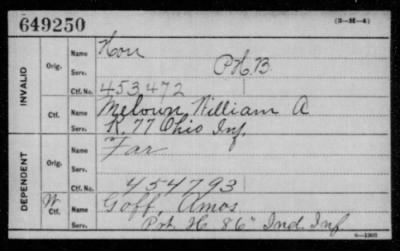 649250
(3-H-4)
INVALID
Orig.
Name
Hon
Serv.
Ctf. No.
453472
Ctf.
Name
Meloun, William A
Serv.
K. 77 Ohio Inf.
DEPENDENT
Orig.
Name
Far
Serv.
Ctf. No.
454793
W
Ctf.
Name
Goff, Amos
Serv.
Pvt H. 86" Ind. Inf